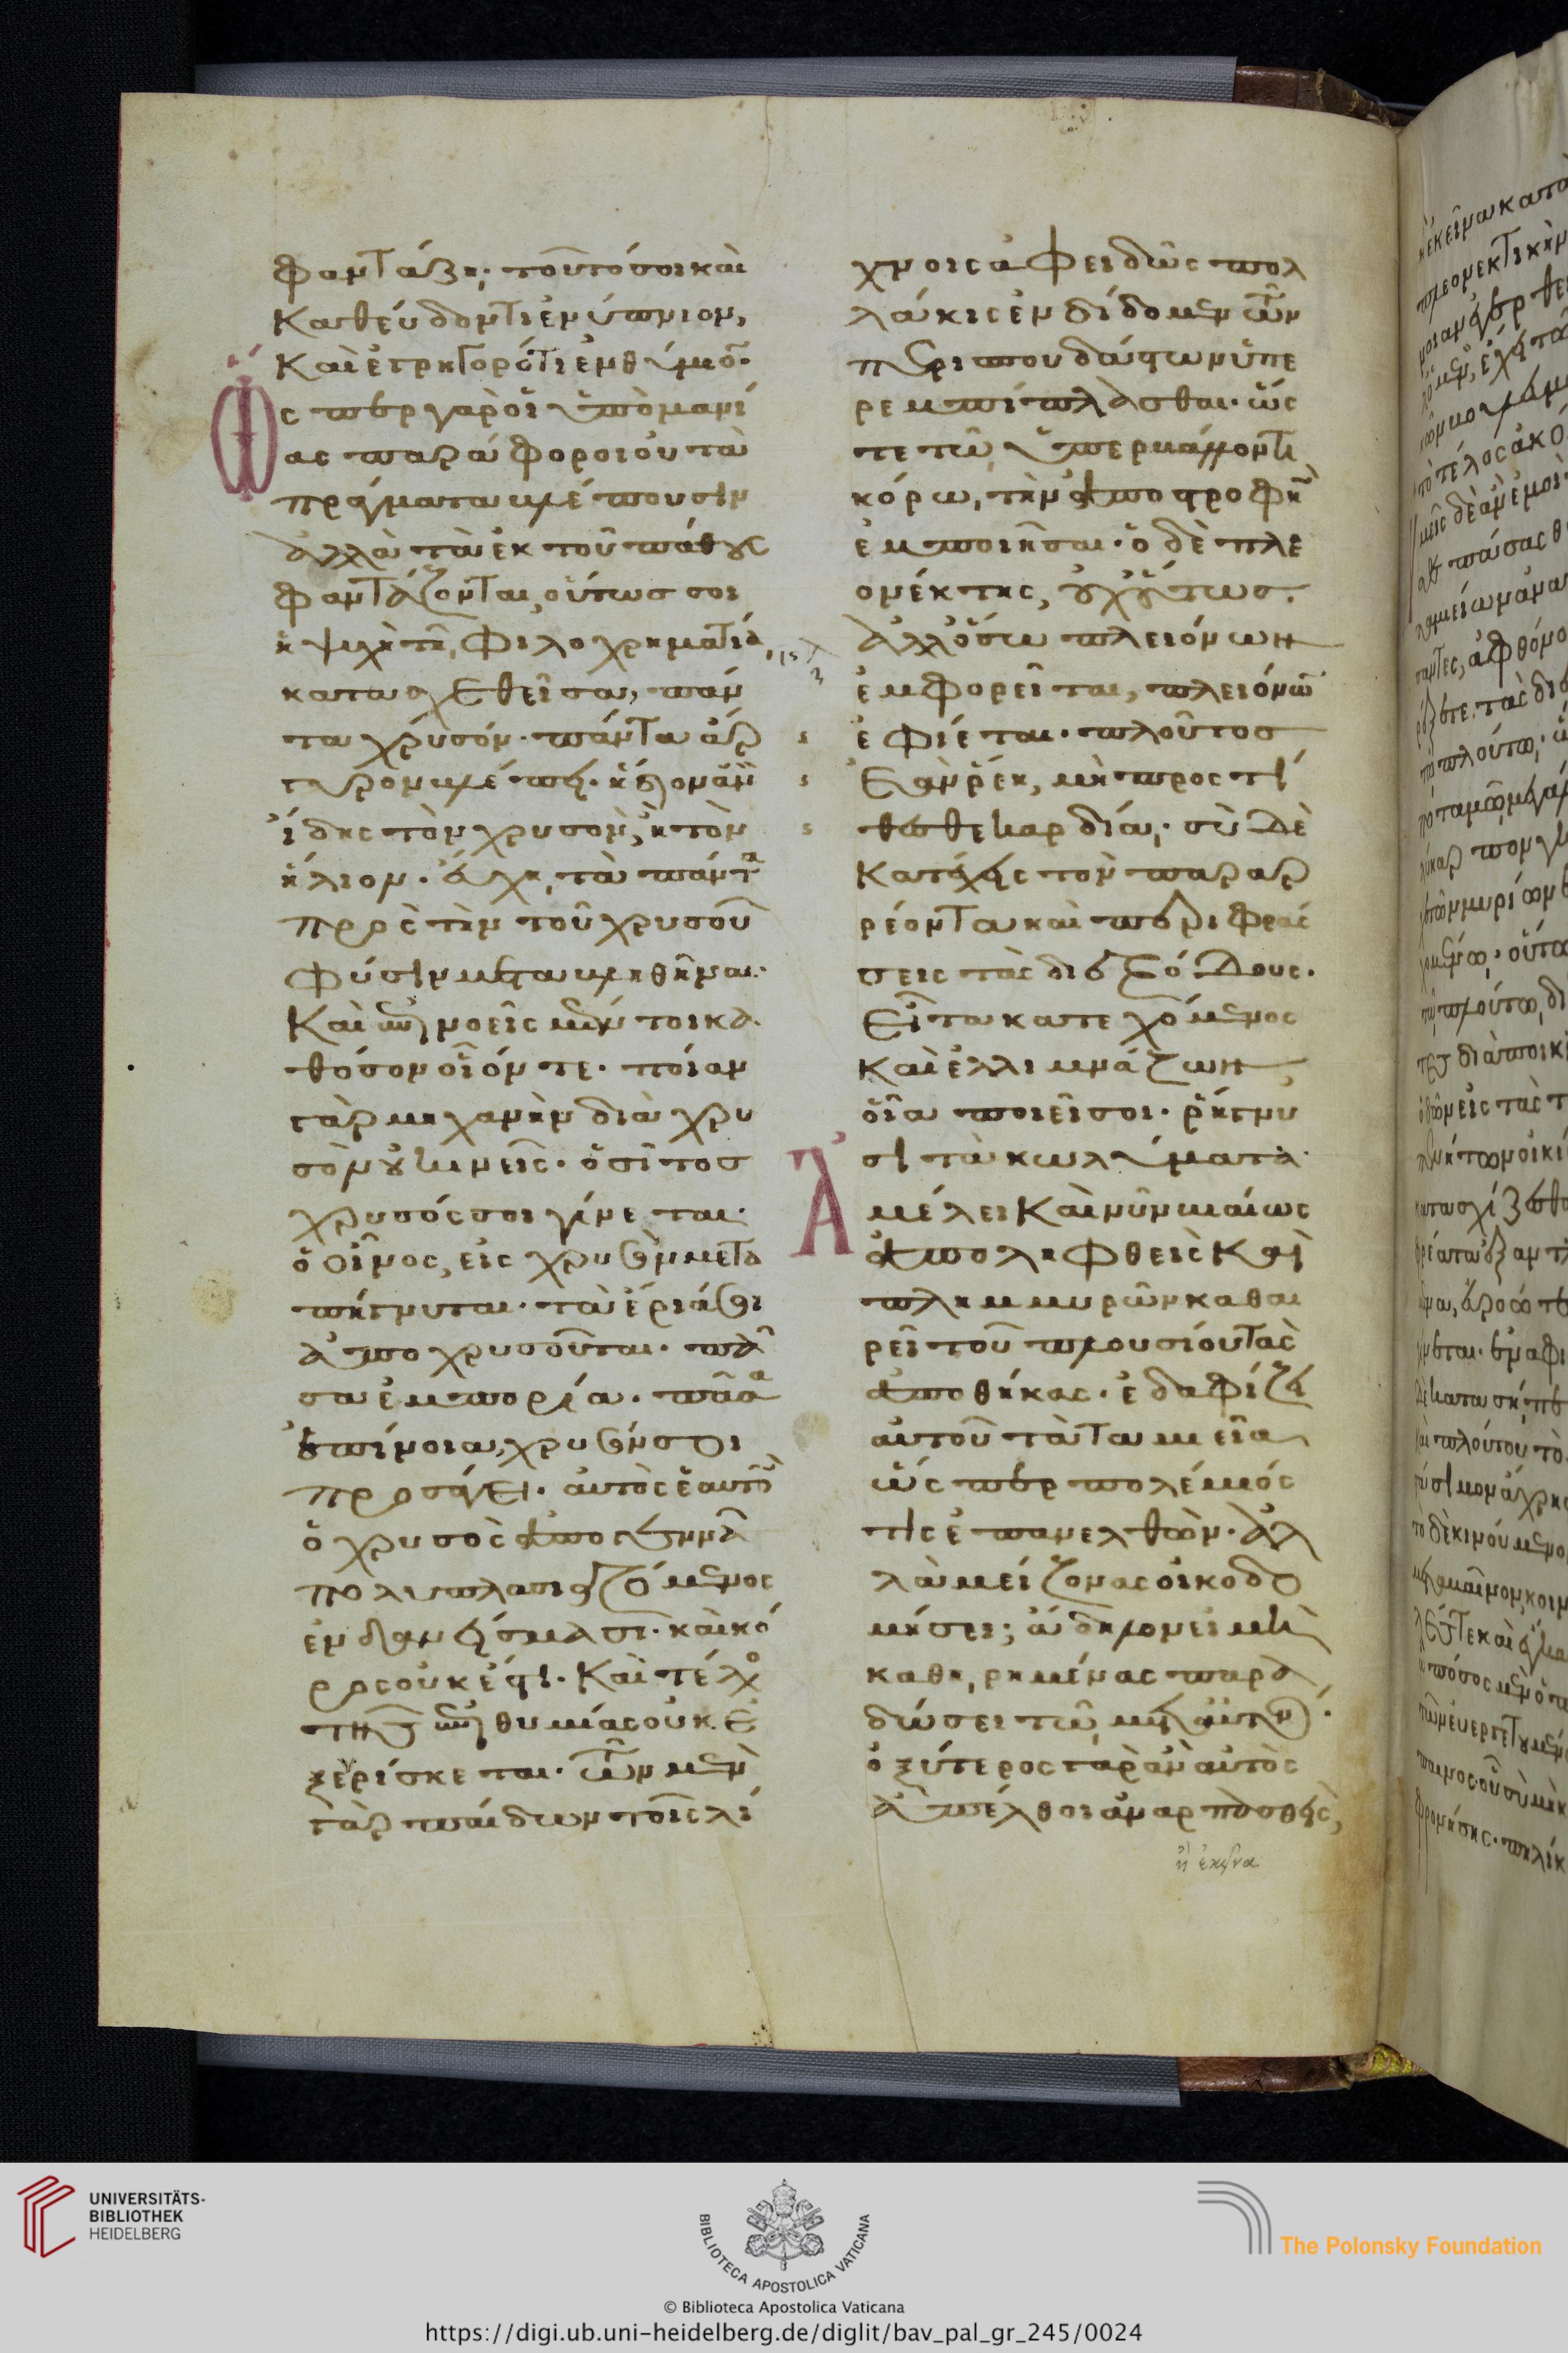 φαντάζῃ; τοῦτό σοι καὶ
καθεύδοντι ἐνύπνιον,
καὶ ἐγρηγορότι ἐνθύμιον.
Ὥσπερ γὰρ οἱ ὑπὸ μανί
ας παράφοροι οὐ τὰ
πράγματα βλέπουσιν
ἀλλὰ τὰ ἐκ τοῦ πάθους
φαντάζονται, οὕτως σοι
ἡ ψυχὴ τῇ φιλοχρηματία,
κατασχεθεῖσα, πάν
τα χρυσόν. πάντα ἄρ
γυρον βλέπει. ἥδιον ἂν
ἴδης τὸν χρυσὸν, ἢ τὸν
ἥλιον. εὔχῃ τὰ πάντα
πρὸς τὴν τοῦ χρυσοῦ
φύσιν μεταβληθῆναι.
καὶ ἐπινοεῖς μέντοι κα
θόσον οἷόν τε. ποίαν
γὰρ μηχανὴν διὰ χρυ
σὸν οὐ κινεῖς. ὁ σῖτος
χρυσός σοι γίνεται.
ὁ οἶνος, εἰς χρυσὸν μετα
πήγνυται. τὰ ἔριά σοι
ἀποχρυσοῦται. πᾶ
σα ἐμπορία. πᾶσα
ἐπίνοια, χρυσόν σοι
προσάγει. αὐτὸς ἑαυτὸν
ὁ χρυσὸς ἀπογεννᾶ
πολυπλασιαζόμενος
ἐν δανείσμασι. καὶ κό
ρος οὐκ ἔστι. καὶ τέλος
τῆς ἐπιθυμίας οὐκ ἐ
ξευρίσκεται. τῶν μὲν
γὰρ παίδων τοῖς λί
χνοις ἀφειδῶς πολ
λάκις ἐνδίδομεν ὧν
περισπουδάστων ὑπε
ρεμπίπλασθαι. ὥς
τε τῷ ὑπερβάλλοντι
κόρῳ, τὴν ἀποστροφὴν
ἐμποιῆσαι. ὁ δὲ πλε
ονέκτης, οὐχ οὕτως.
ἀλλ' ὅσω πλειόνων
ἐμφορεῖται, πλειόνων
ἐφίεται. πλοῦτος
ἐὰν ῥέη, μὴ προστί
θεσθε καρδία. σὺ δὲ
κατέχεις τὸν παραρ
ρέοντα καὶ περιφράς
σεις τὰς διεξόδους.
εἶτα κατεχόμενος
καὶ ἐλλιμνάζων,
οἷα ποιεῖ σοι. ῥήγνυ
σι τὰ κωλύματα.
Ἀμέλει καὶ νῦν βιαίως
ἀποληφθεὶς καὶ
πλημμυρῶν καθαι
ρεῖ τοῦ πλουσίου τὰς
ἀποθήκας. ἐδαφίζει
αὐτοῦ τὰ ταμεῖα
ὥσπερ πολέμιός
τις ἐπανελθών. ἀλ
λὰ μείζονας οἰκοδο
μήσει; ἄδηλον εἰ μὴ
καθῃρημένας παρα
δώσει τῷ μετ' αὐτόν.
ὀξύτερος γὰρ ἂν αὐτὸς
ἀπέλθοι ἀναρπασθείς,
ἢ ἐκεῖνα
UNIVERSITÄTS-
BIBLIOTHEK
HEIDELBERG
BIBLIOTECA APOSTOLICA VATICANA
The Polonsky Foundation
© Biblioteca Apostolica Vaticana
https://digi.ub.uni-heidelberg.de/diglit/bav_pal_gr_245/0024